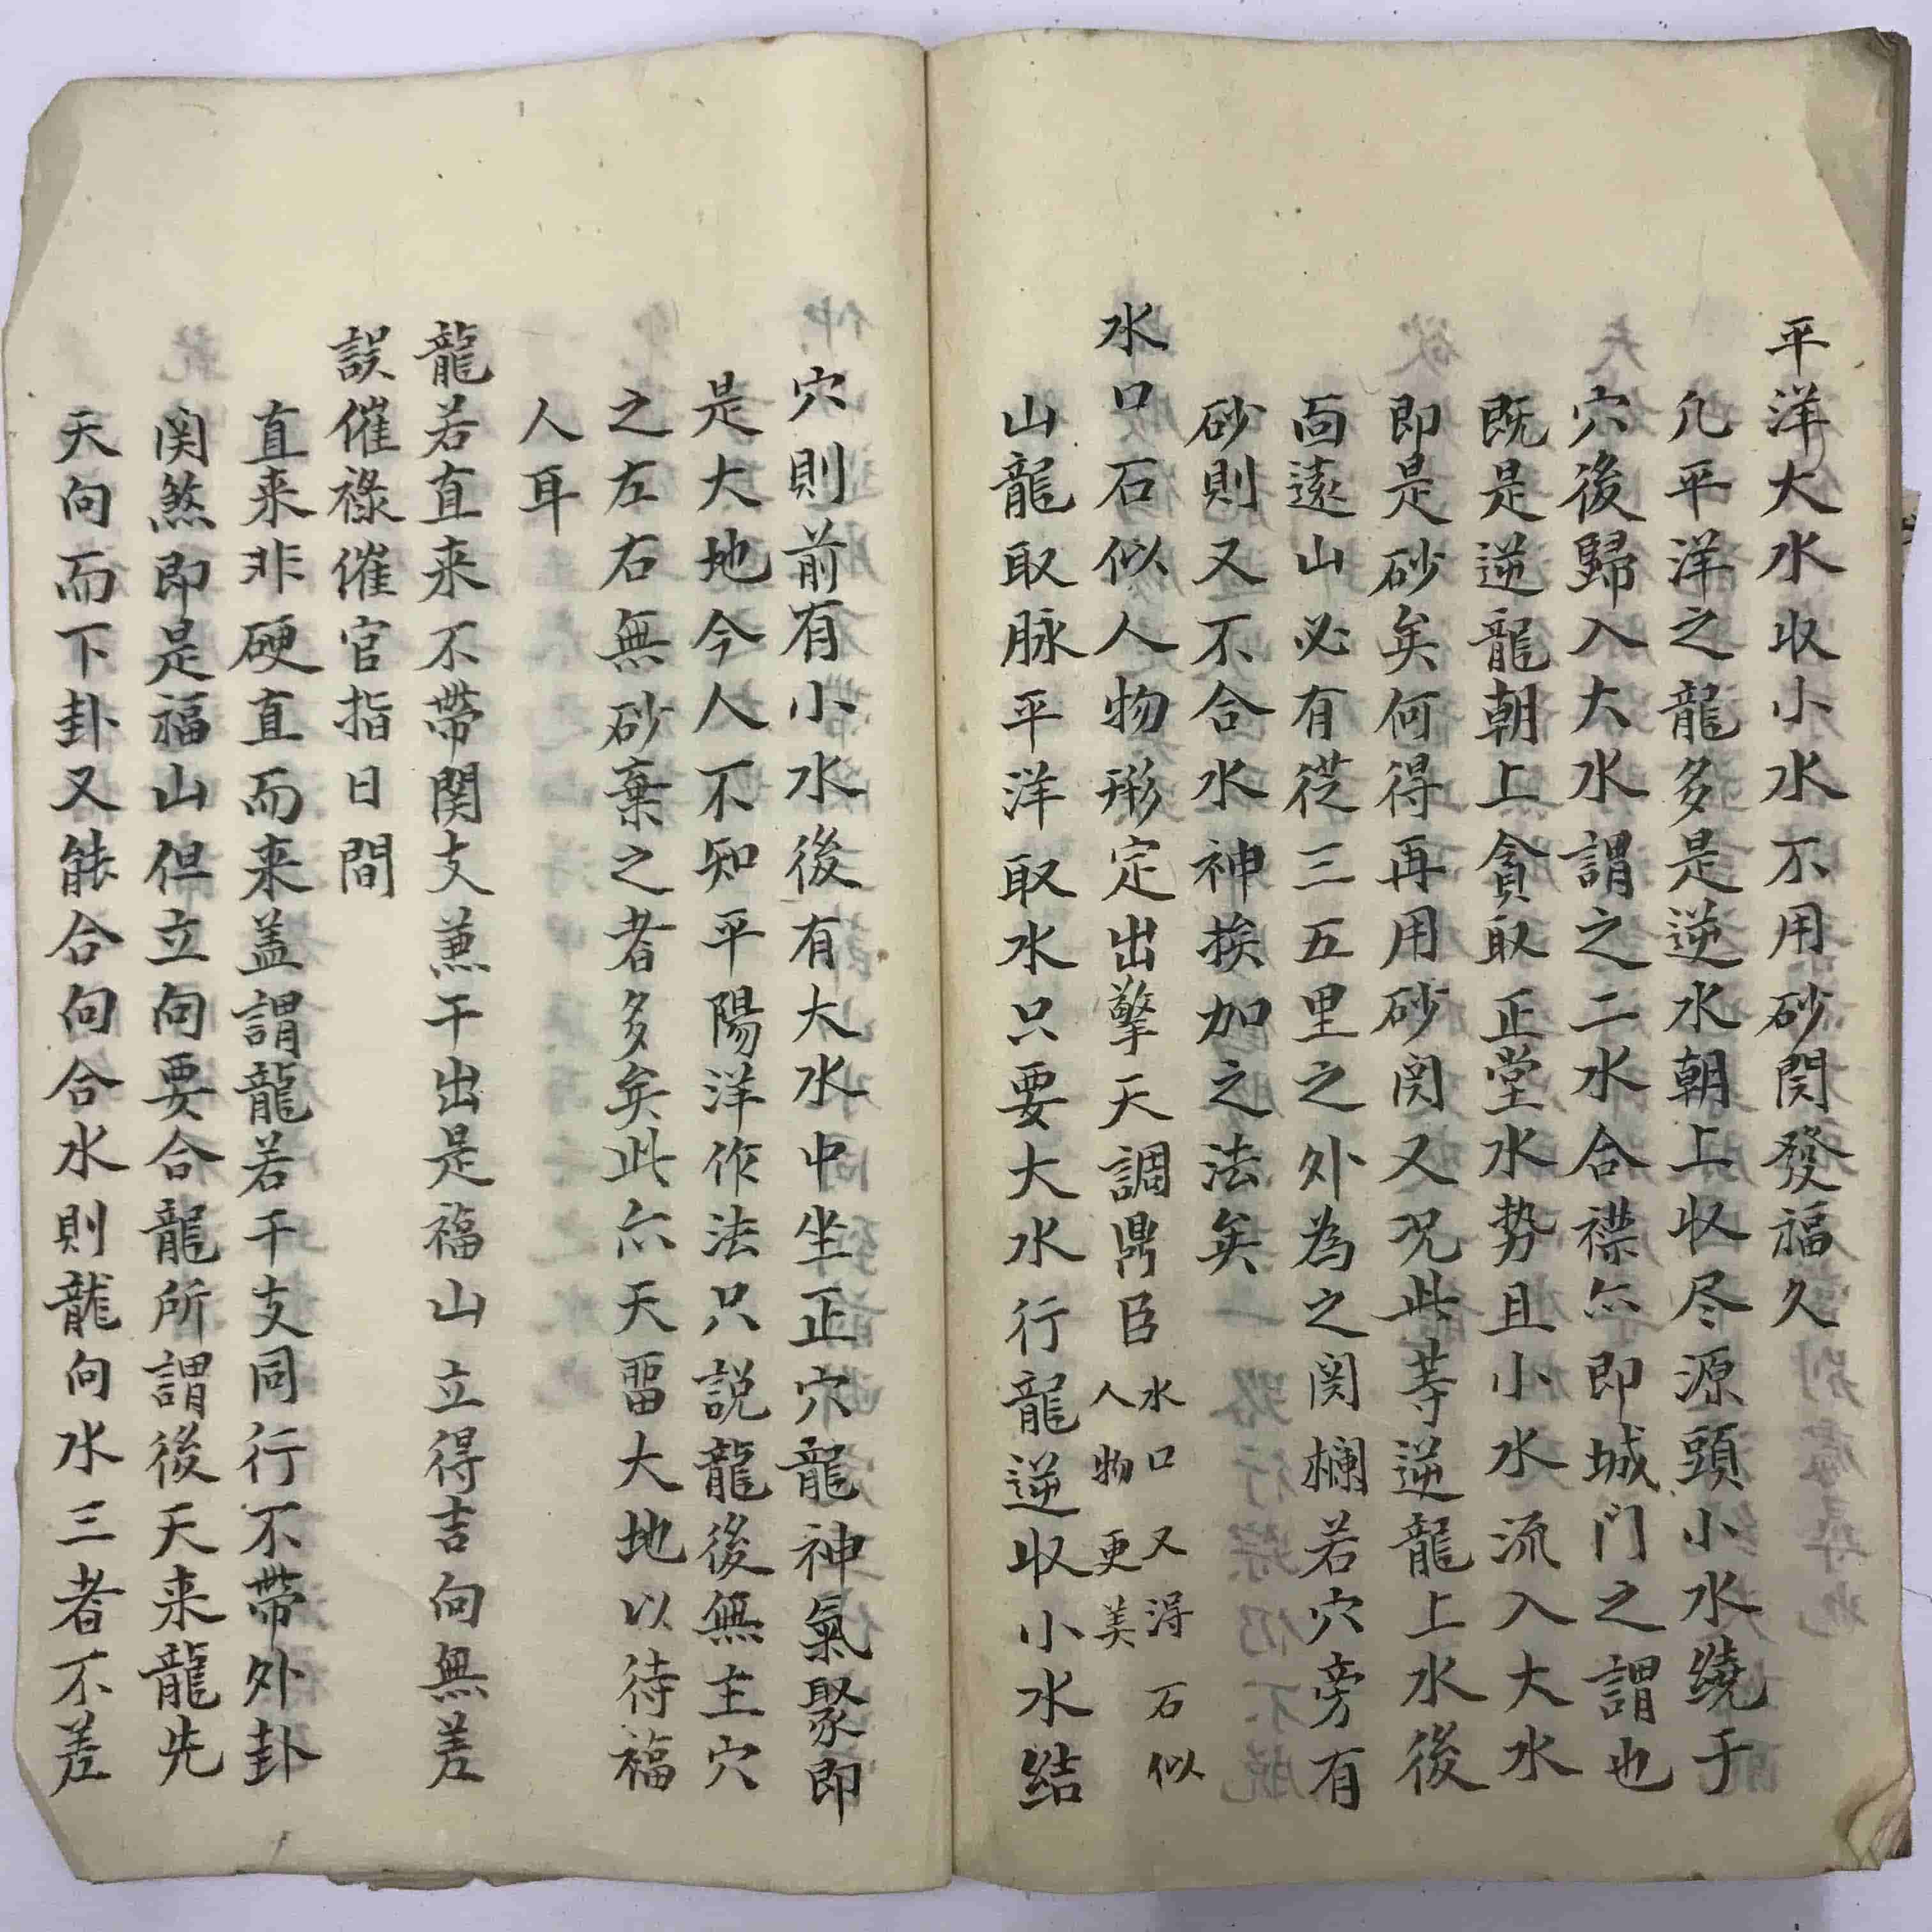 平洋大水收小水不用砂関發福久
凢平洋之龍多是逆水朝上收尽源頭小水繞于
穴後歸入大水謂之二水合襟亦即城门之謂也
既是逆龍朝上貪取正堂水势且小水流入大水
即是砂矣何得再用砂関又况此等逆龍上水後
面遠山必有從三五里之外為之関欄若穴旁有
砂則又不合水神挨加之法矣
水口石似人物形定出擎天調鼎臣水口又得石似
人物更美
山龍取脉平洋取水只要大水行龍逆收小水结
穴則前有小水後有大水中坐正穴龍神氣聚即
是大地今人不知平陽洋作法只説龍後無主穴
之左右無砂棄之者多矣此亦天畱大地以待福
人耳
龍若直来不帶関支兼干出是福山立得吉向無差
誤催祿催官指日間
直来非硬直而来盖謂龍若干支同行不帶外卦
関煞即是福山但立向要合龍所謂後天来龍先
天向而下卦又能合向合水則龍向水三者不差